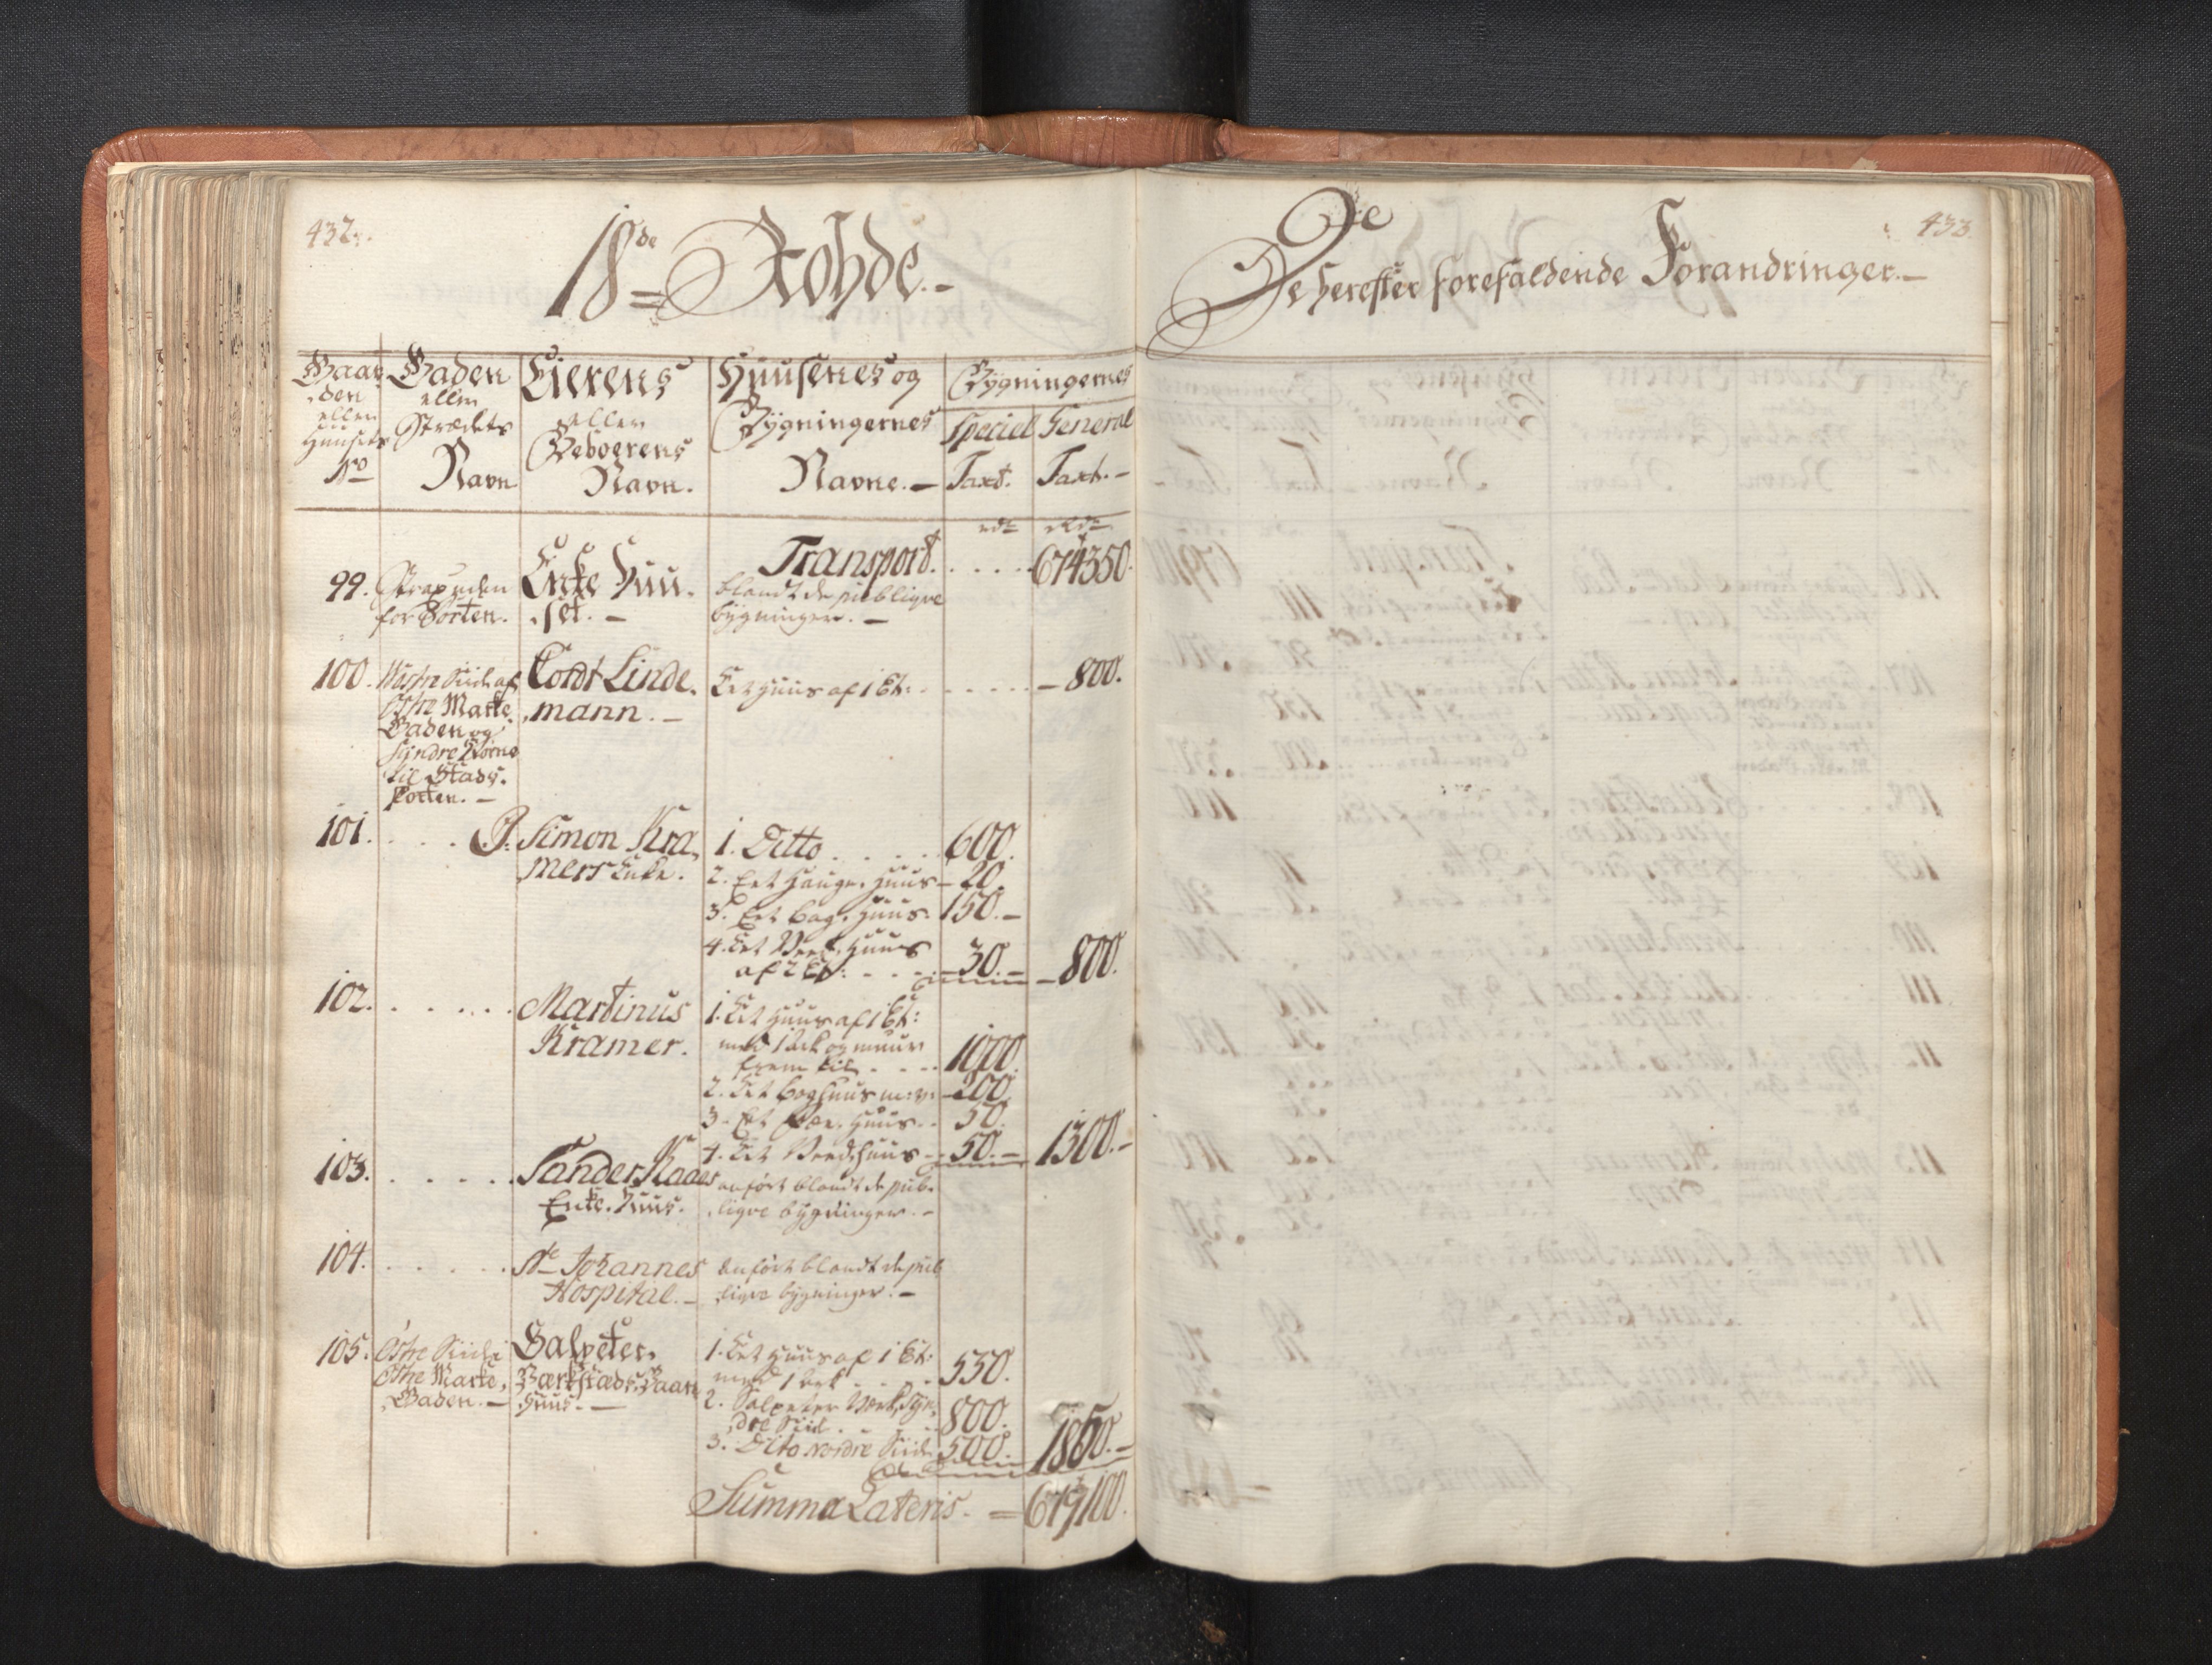 432.
18de Rohde.-
Gaar-
den
eller
Huusets
No
Gaden
eller
Strædets
Navn
Eierens
eller
Beboerens
Navn.
Huusenes og
Bygningernes
Navne.-
Bygningernes
Speciel
Taxt.
General
Taxt.-
rdr
rdr
Transport. . . . . . 674350.
99. Strax uden
for Porten.
Enke Huu-
set.-
blandt de publiqve
bygninger.-
100. Westre Siide af
Østre Marke
Gaden og
Syndre Hiørne
til Stads-
Porten.-
Cordt Linde-
mann.-
Eet Huus af 1 Et: . . . . . - 800.
101. . . . . P. Simon Kra-
mers Enke.
1. Ditto . . . . . 600.
2. Eet Hauge-Huus - 20.
3. Eet Bag-Huus. 150.-
4. Eet Huus
af 2 Et: . . . - 30.- - 800.
102. . . . . . Martinus
Kramer.
1. Eet Huus af 1 Et:
med 1 Ark og muur
frem til . . . . 1000.
2. Eet Baghuus m: v: - 200.
3. Eet Huus . . 50.
4. Eet Vedhuus - 50.- 1300.-
103. . . . . . Sander Kaaes
Enke-Huus.
anført blandt de pub-
liqve bygninger.-
104. . . . . . St Johannes
Hospital.-
anført blandt de pub
liqve bygninger.-
105. Østre Siide i
Østre Marke-
Gaden.-
Salpeter-
Værkstæds Vaan
Huus.-
1. Eet Huus af 1 Et:
med 1 Ark . . . . 550.
2. Salpeter Værk, Syn-
dre Siide . . . 800.
3. Dito Nordre Siide 500. 1850.-
Summa Lateris. = 679100.
433.
De herefter forefaldende Forandringer.-